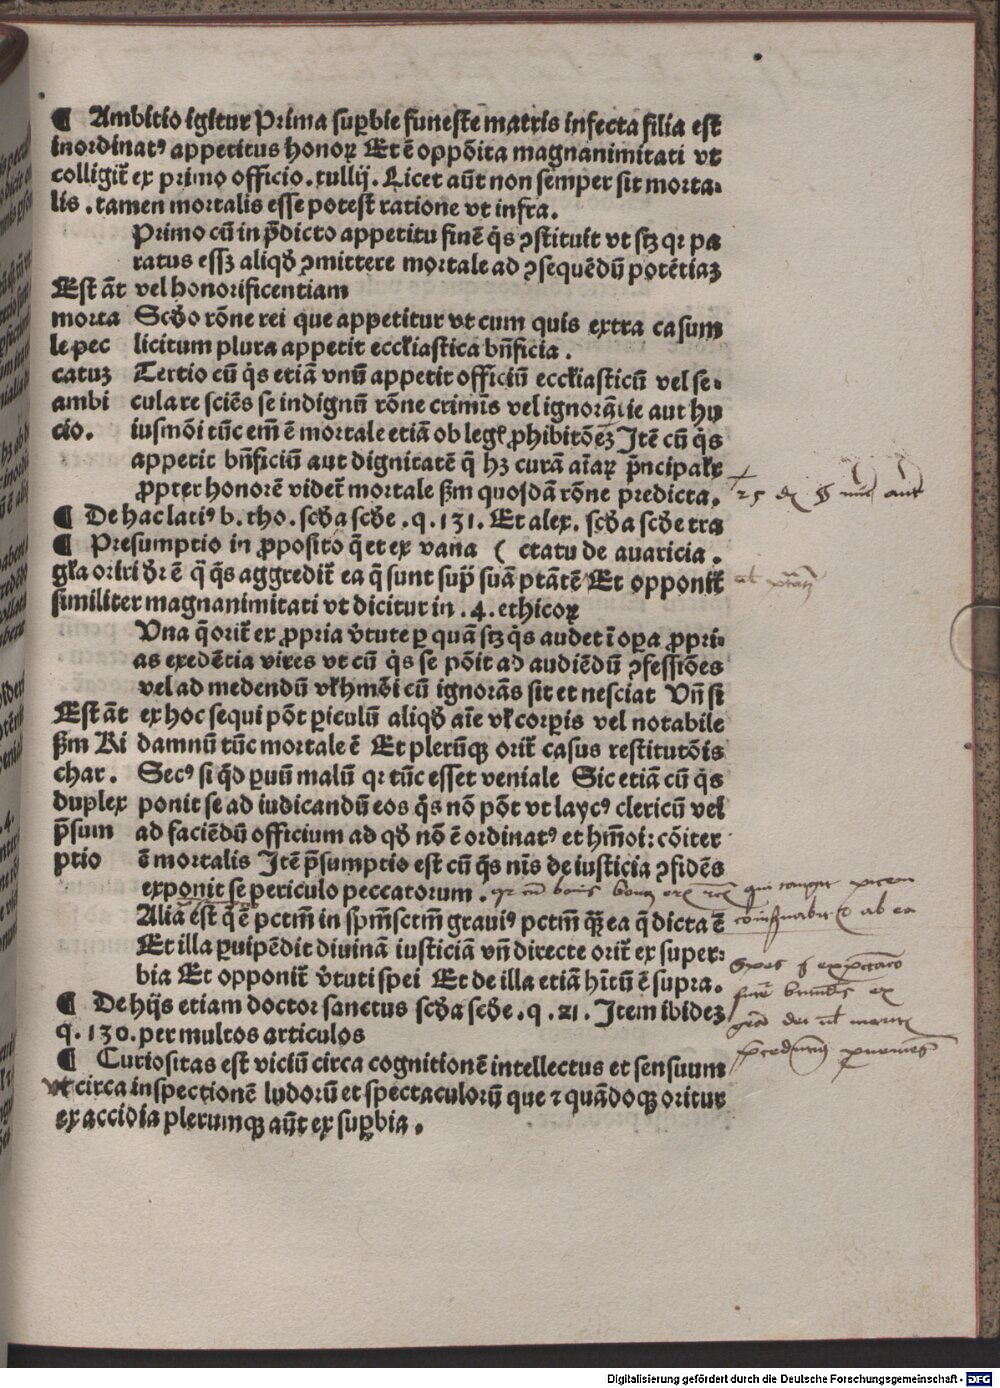 ¶ Ambitio igitur Prima sup̱bie funeste matris infecta filia est
inordinatꝰ appetitus honoꝝ Et ē oppōita magnanimitati vt
colligit᷑ ex primo officio. tullij. Licet aūt non semper sit morta-
lis . tamen mortalis esse potest ratione vt infra.
Primo cū in p̄dicto appetitu finē q̇s ꝯstituit vt sꝫ qꝛ pa
ratus essꝫ aliqđ ꝯmittere mortale ad ꝯsequēdū potētiaꝫ
Est āt vel honorificentiam
morta Scđo rōne rei que appetitur vt cum quis extra casum
le pec licitum plura appetit eccłiastica bn̄ficia .
catuꝫ Tertio cū q̇s etiā vnū appetit officiū eccłiasticū vel se-
ambi culare sciēs se indignū rōne crimīs vel ignorātie aut hu
cio. iusmōi tūc em̄ ē mortale etiā ob legꝭ ꝓhibitōeꝫ Itē cū q̇s
appetit bn̄ficiū aut dignitatē q̄ hꝫ curā aīaꝝ p̄ncipalr᷑
ꝓpter honorē videt᷑ mortale ẜm quosdā rōne predicta.
¶ De hac latiꝰ b. tho. scđa scđe .q. 131. Et alex. scđa scđe tra
¶ Presumptio in ꝓposito q̄ et ex vana ( ctatu de auaricia .
gł̄a oriri đr ē q̄ q̇s aggredit᷑ ea q̄ sunt sup̄ suā ptātē Et opponit᷑
similiter magnanimitati vt dicitur in .4. ethicoꝝ
Vna q̄ orit᷑ ex ꝓpria v̇tute ꝑ quā sꝫ q̇s audet ī oꝑa ꝓpri-
as exedētia vires vt cū q̇s se pōit ad audiēdū ꝯfessiōes
vel ad medendū vł hmōi cū ignorās sit et nesciat Vn̄ si
Est āt ex hoc sequi pōt ꝑiculū aliqđ aīe vł corꝑis vel notabile
ẜm Ri damnū tūc mortale ē Et plerūqꝫ orit᷑ casus restitutōis
char. Secꝰ si q̇d ꝑuū malū qꝛ tūc esset veniale Sic etiā cū q̇s
duplex ponit se ad iudicandū eos q̇s nō pōt vt laycꝰ clericū vel
p̄sum ad faciēdū officium ad qđ nō ē ordinatꝰ et hm̄oi: cōiter
ptio ē mortalis Itē p̄sumptio est cū q̇s nīs de iusticia ꝯfidēs
exponit se periculo peccatorum .
Alia est q̄ ē pctm̄ in spm̄sctm̄ grauiꝰ pctm̄ qꝫ̄ ea q̄ dicta ē
Et illa ꝑuipēdit diuinā iusticiā vn̄ directe orit᷑ ex super-
bia Et opponit᷑ v̇tuti spei Et de illa etiā hītū ē supra.
¶ De hijs etiam doctor sanctus scđa scđe .q .21. Item ibideꝫ
q. 130. per multos articulos
¶ Curiositas est viciū circa cognitionē intellectus et sensuum
vt circa inspectionē ludorū et spectaculorū que ⁊ quādoqꝫ oritur
ex accidia plerumqꝫ aūt ex suꝑbia .
Digitalisierung gefördert durch die Deutsche Forschungsgemeinschaft - DFG